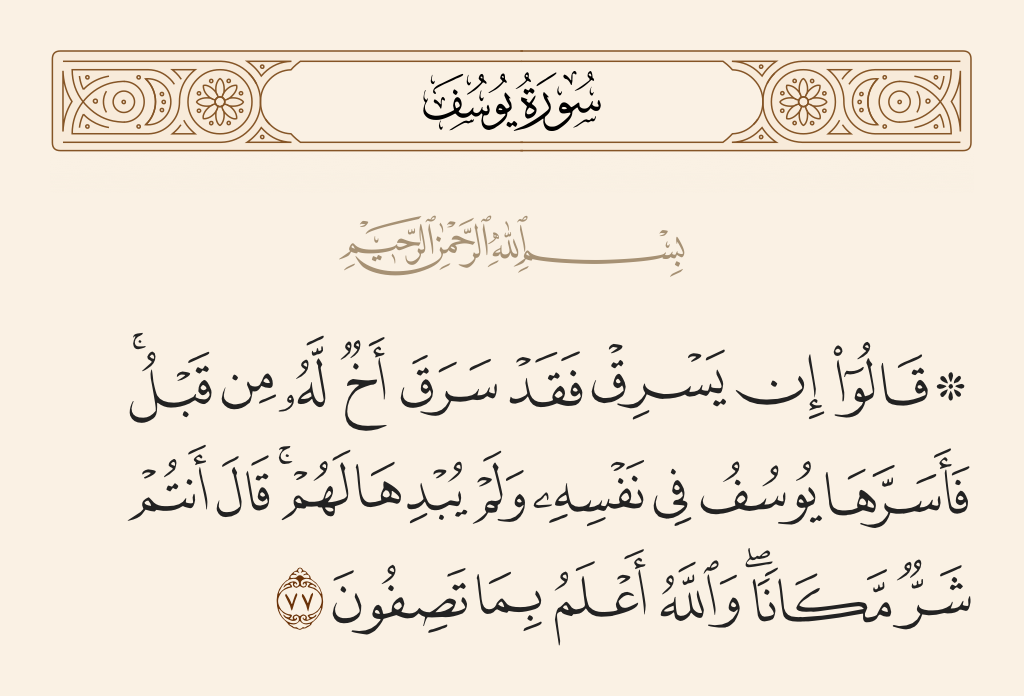 سُورَةُ يُوسُفَ
بِسْمِ ٱللَّهِ ٱلرَّحْمَٰنِ ٱلرَّحِيمِ
۞ قَالُوٓا۟ إِن يَسْرِقْ فَقَدْ سَرَقَ أَخٌ لَّهُۥ مِن قَبْلُ ۚ
فَأَسَرَّهَا يُوسُفُ فِى نَفْسِهِۦ وَلَمْ يُبْدِهَا لَهُمْ ۚ قَالَ أَنتُمْ
شَرٌّ مَّكَانًا ۖ وَٱللَّهُ أَعْلَمُ بِمَا تَصِفُونَ ٧٧